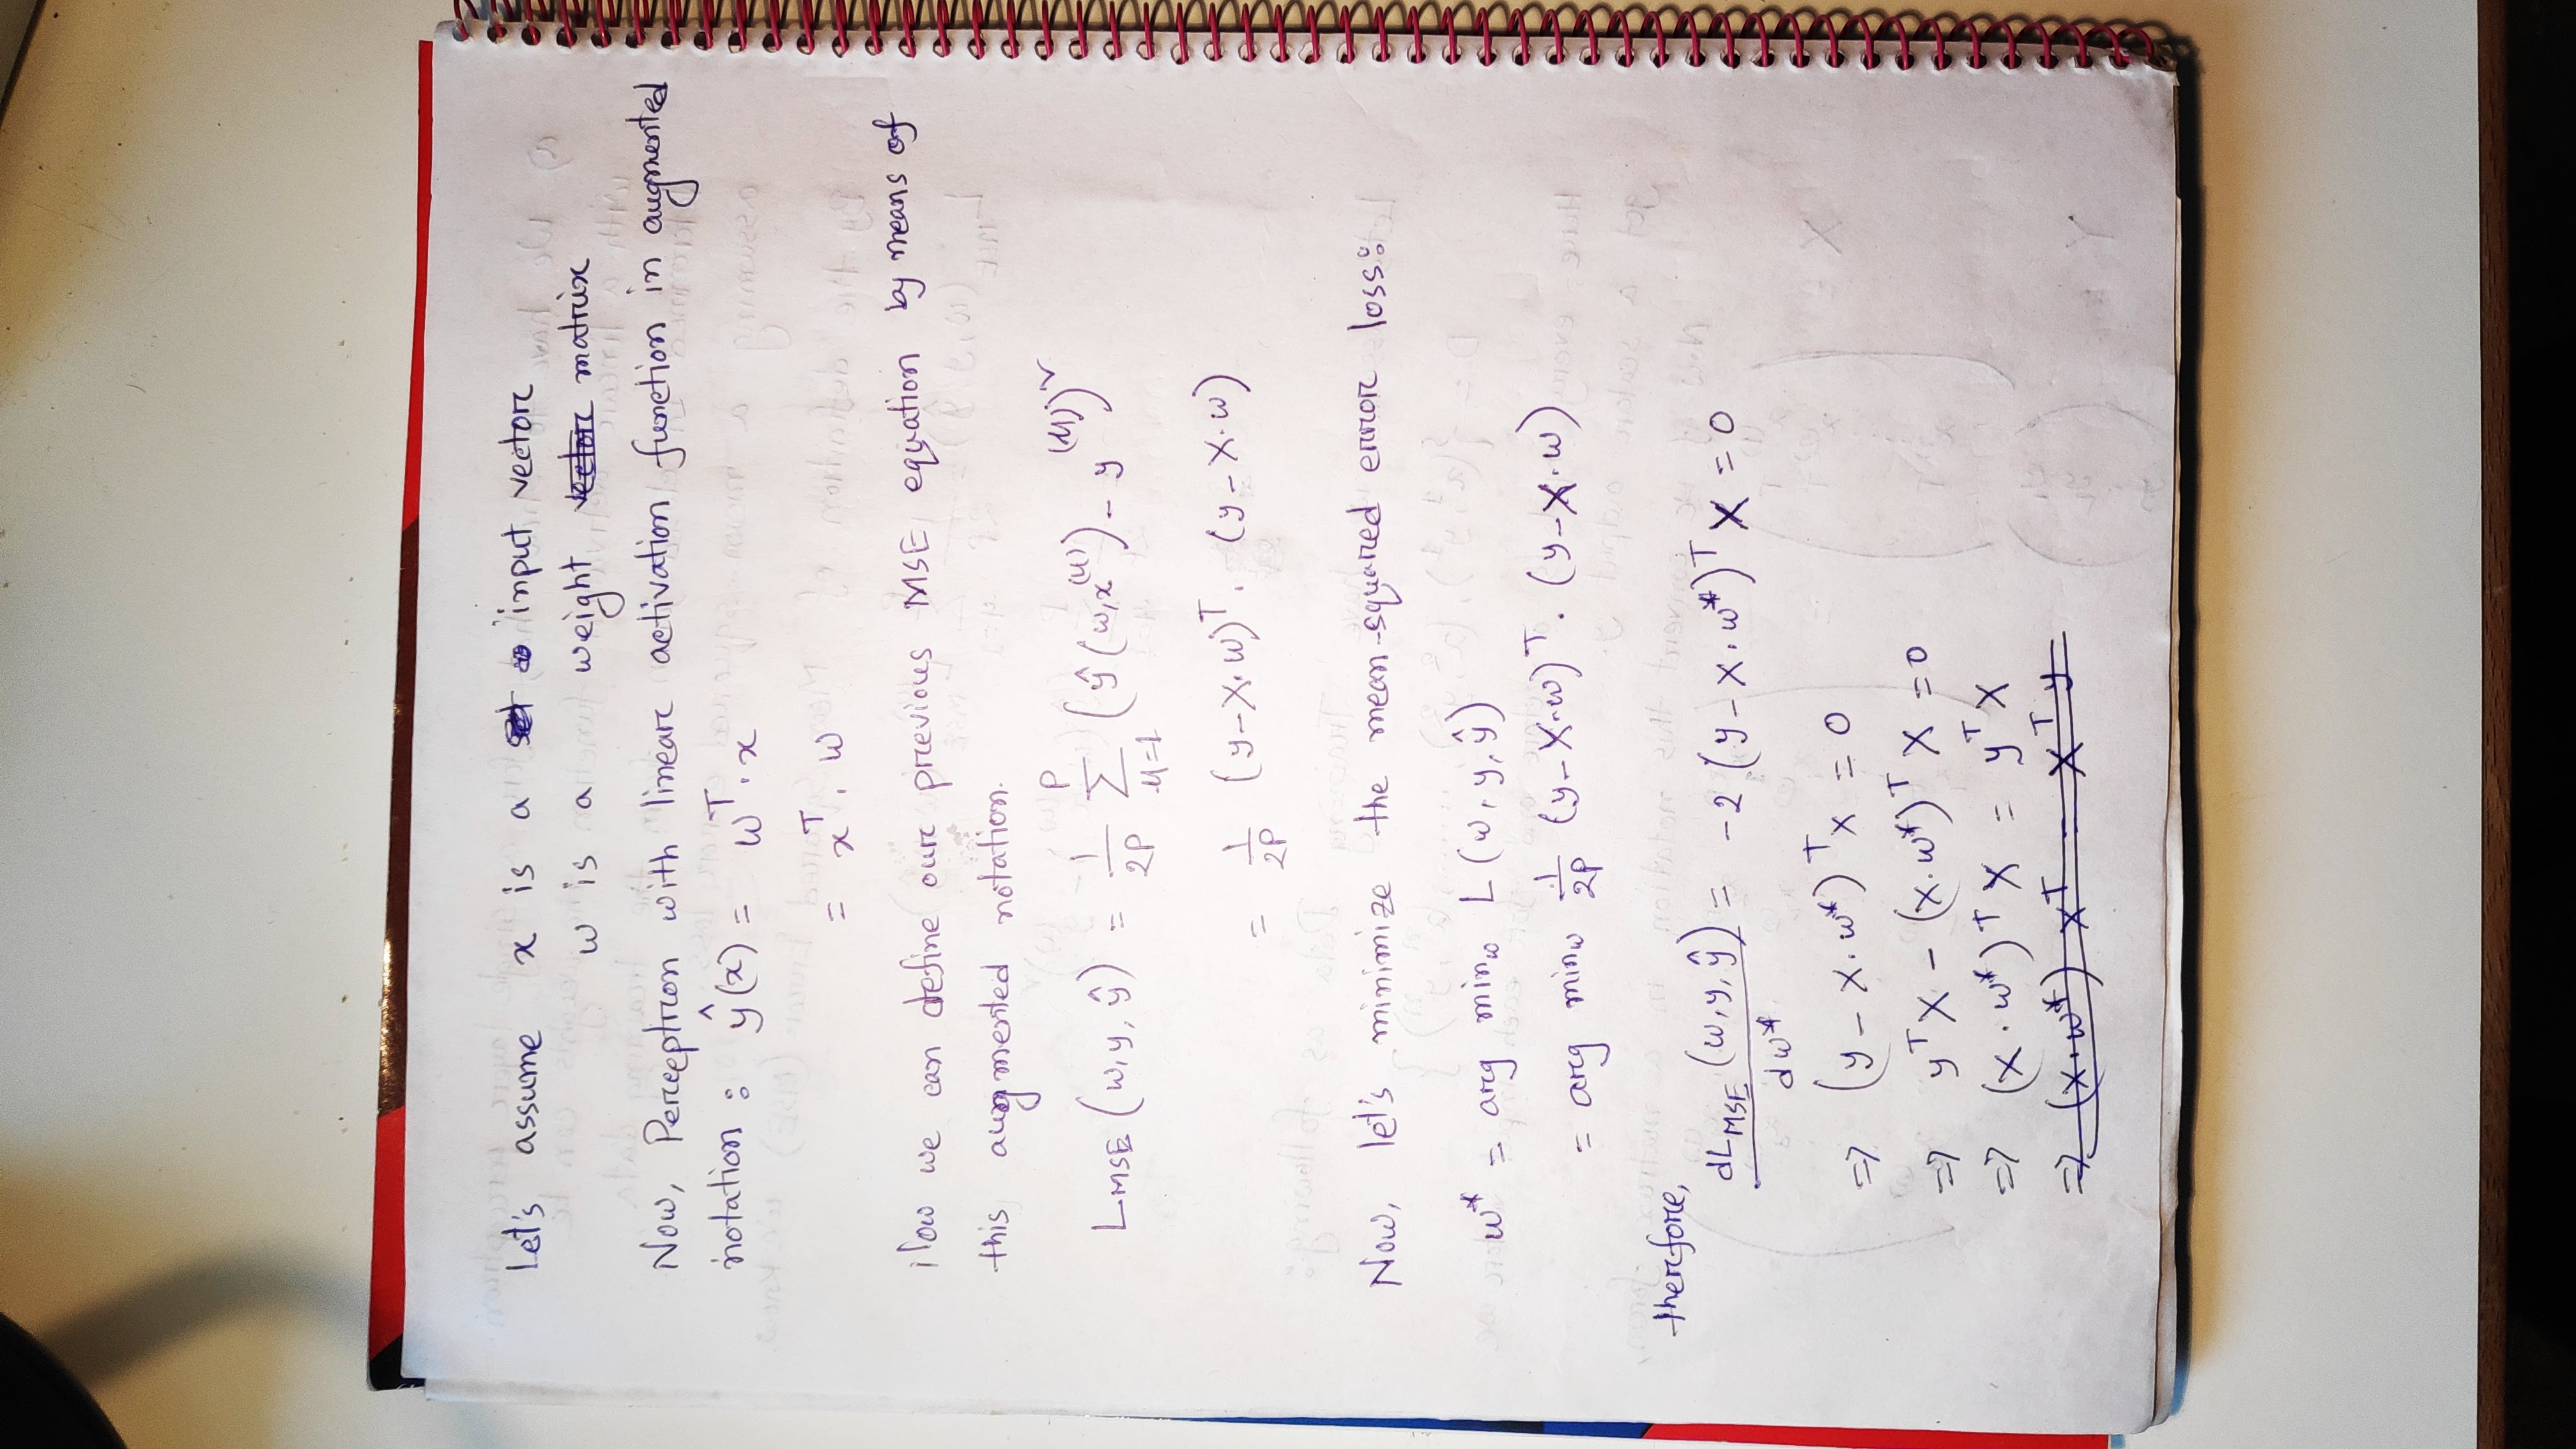 Let's assume x is a input vector
w is a weight matrix
Now, Perceptron with linear activation function in augmented
notation : ŷ(x) = w^T . x
= x^T . w
Now we can define our previous MSE equation by means of
this augmented notation.
L_MSE (w, y, ŷ) = 1/2P Σ_{μ=1}^{P} (ŷ(w, x^(μ)) - y^(μ))²
= 1/2P (y - X.w)^T . (y - X.w)
Now, let's minimize the mean-squared error loss:
w* = arg min_w L (w, y, ŷ)
= arg min_w 1/2P (y - X.w)^T . (y - X.w)
therefore,
dL_MSE (w, y, ŷ) / dw* = -2 (y - X.w*)^T X = 0
=> (y - X.w*)^T X = 0
=> y^T X - (X.w*)^T X = 0
=> (X.w*)^T X = y^T X
=> (X.w*) X^T = X^T y